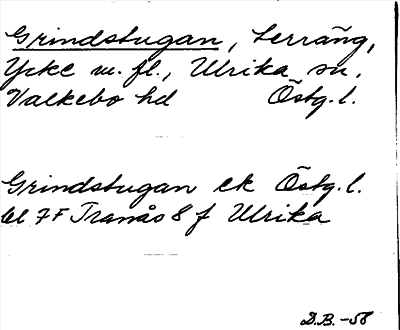 Grindstugan, terräng,
Ycke m. fl., Ulrika sn.
Valkebo hd Östg. l.
Grindstugan ek Östg. l.
bl 7F Tranås 8 f Ulrika
D.B. -58